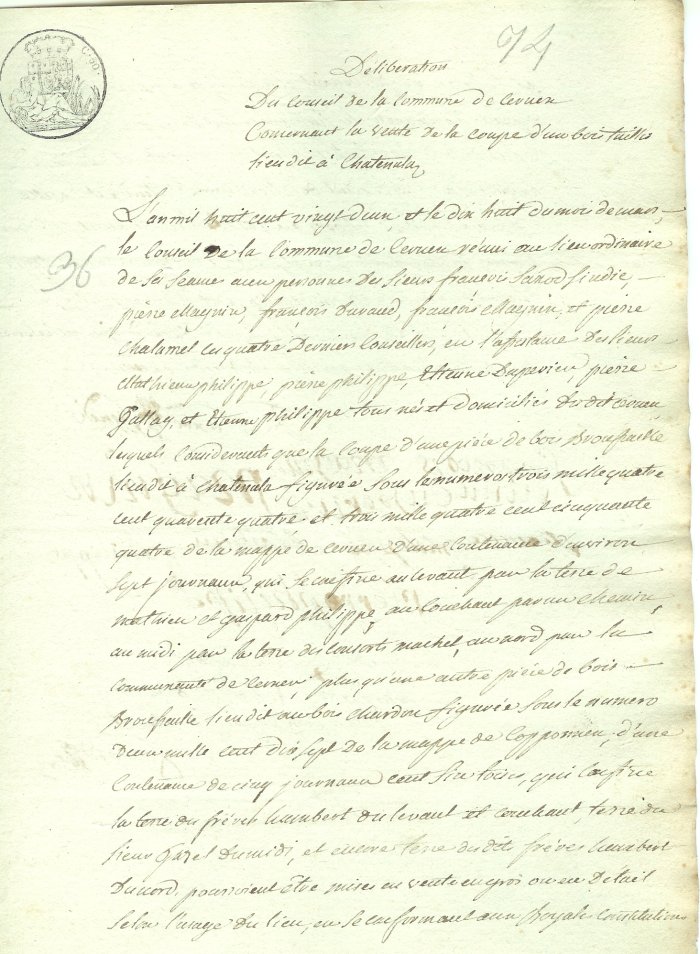 74
Déliberation
Du Conseil de la Commune de Cernex
Concernant la vente de la coupe d'un bois taillis
lieu dit à Chatenala
L'an mil huit cent vingt d'un, et le dix huit du mois de mars,
36
le Conseil de la Commune de Cernex réuni au lieu ordinaire
de ses seances aux personnes des sieurs françois sindic,
pierre Magnin, françois Duraud, françois Magnin, et pierre
Chalamel les quatre Derniers Conseillers, en l'assistance des sieurs
Mathieu philippe, pierre philippe, Etienne Duperieu, pierre
Gallay, et Etienne philippe tous nés et domiciliés dudit Cernex,
lesquels Considerants que la coupe d'une pièce de bois Broussaille
lieu dit à Chatenala figurée sous le numero trois mille quatre
cent quarente quatre et trois mille quatre cent cinquante
quatre de la mappe de cernex d'une Contenance d'environ
sept journaux, qui se confine au levant par la terre de
mathieu et gaspard philippe, au Couchant par un chemin,
au midi par la terre des Consorts machet, au nord par la
Communauté de Cernex, plus qu'une autre pièce de bois
Broussaille lieu dit au bois chardon figurée sous le numero
Deux mille cent dix sept de la mappe de Copponnex, d'une
Contenance de cinq journaux cent six toises, qui confine
la terre du fréres humbert du levant et couchant, terre du
sieur gazel du midi, et encore terre desdits fréres humbert
Du nord, pourroient être mises en vente en gros ou en Détail
selon l'usage du lieu, en se conformant aux Royales Constitutions